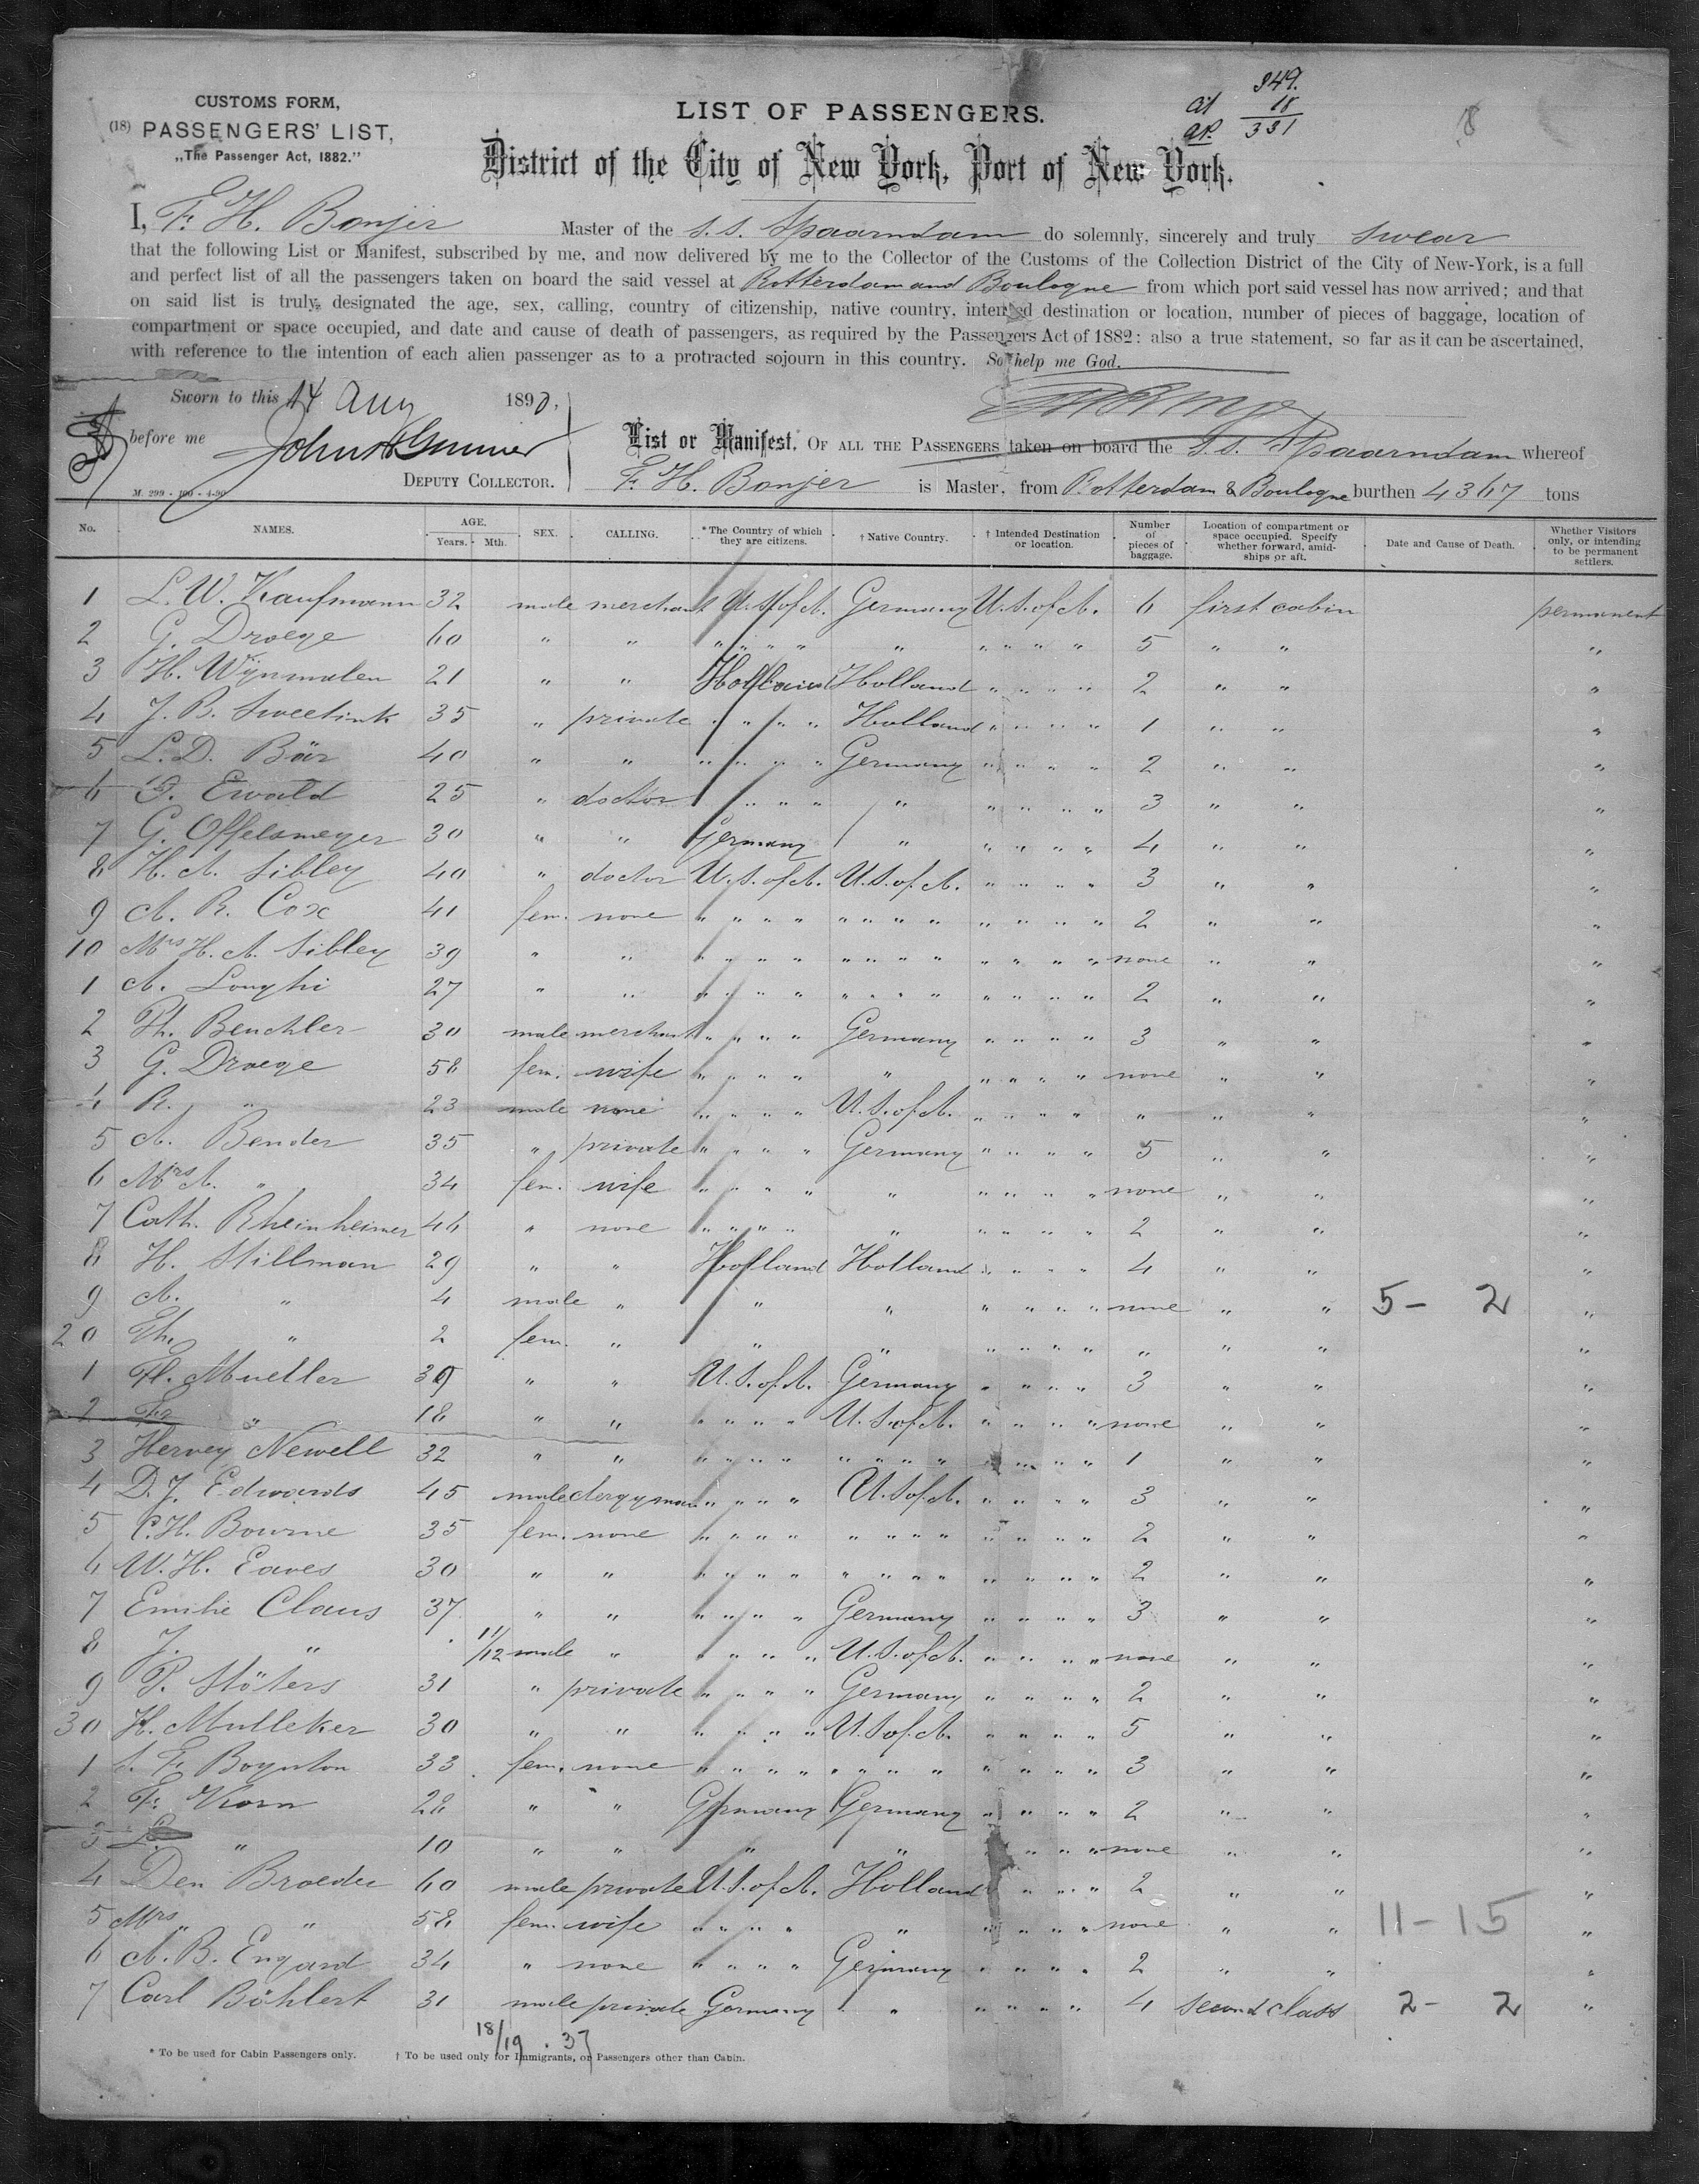 CUSTOMS FORM,
(18) PASSENGERS' LIST,
„The Passenger Act, 1882."
LIST OF PASSENGERS.
349.
18
331
18
District of the City of New York, Port of New York.
I, F. H. Bonjer Master of the S.S. Spaarndam do solemnly, sincerely and truly swear
that the following List or Manifest, subscribed by me, and now delivered by me to the Collector of the Customs of the Collection District of the City of New-York, is a full
and perfect list of all the passengers taken on board the said vessel at Rotterdam and Boulogne from which port said vessel has now arrived; and that
on said list is truly designated the age, sex, calling, country of citizenship, native country, intended destination or location, number of pieces of baggage, location of
compartment or space occupied, and date and cause of death of passengers, as required by the Passengers Act of 1882: also a true statement, so far as it can be ascertained,
with reference to the intention of each alien passenger as to a protracted sojourn in this country. So help me God.
Sworn to this 14 Aug 1890,
before me John
DEPUTY COLLECTOR.
M. 299 - 100 - 4-90
List or Manifest, OF ALL THE PASSENGERS taken on board the S.S. Spaarndam whereof
F. H. Bonjer is Master, from Rotterdam & Boulogne burthen 4367 tons
No. NAMES. AGE. Years. Mth. SEX. CALLING. *The Country of which they are citizens. † Native Country. † Intended Destination or location. Number of pieces of baggage. Location of compartment or space occupied. Specify whether forward, amidships or aft. Date and Cause of Death. Whether Visitors only, or intending to be permanent settlers.
1 L. W. Kaufmann 32 male merchant U.S.of A. Germany U.S.of A. 6 first cabin permanent
2 G. Droege 60 " " " " " " " " " " " 5 " " "
3 H. Wijnmalen 21 " " Holland Holland " " " " 2 " " "
4 J. B. Sweetink 35 " private " " " " Holland " " " " 1 " " "
5 L. D. Bär 40 " " " " " " Germany " " " " 2 " " "
6 Ewald 25 " doctor " " " " " " " " 3 " " "
7 G. Offelsmeyer 30 " " Germany " " " " " 4 " " "
8 H. A. Sibley 40 " doctor U.S.of A. U.S.of A. " " " " 3 " " "
9 A. R. Cox 41 fem. none " " " " " " " " " " " " 2 " " "
10 Mrs H. A. Sibley 39 " " " " " " " " " " " " " " none " " "
1 A. Longhi 27 " " " " " " " " " " " " " " 2 " " "
2 Ph. Beuchler 30 male merchant " " " " Germany " " " " 3 " " "
3 G. Droege 58 fem. wife " " " " " " " " " none " " "
4 R. " 23 male none " " " " U.S.of A. " " " " " " " "
5 A. Bender 35 " private " " " " Germany " " " " 5 " " "
6 Mrs A. " 34 fem. wife " " " " " " " " " none " " "
7 Cath. Rheinheimer 46 " none " " " " " " " " " 2 " " "
8 H. Stillman 29 " " Holland Holland " " " " 4 " " "
9 A. " 4 male " " " " " " " none " " 5 - 2 "
20 Th. " 2 fem. " " " " " " " " " " "
1 H. Mueller 39 " " U.S.of A. Germany " " " " 3 " " "
2 Fr " 18 " " " " " " U.S.of A. " " " " none " " "
3 Hervey Newell 32 " " " " " " " " " " " " " " 1 " " "
4 D. J. Edwards 45 male clergyman " " " " U.S.of A. " " " " 3 " " "
5 C. H. Bourne 35 fem. none " " " " " " " " " " " " 2 " " "
6 W. H. Eaves 30 " " " " " " " " " " " " " " 2 " " "
7 Emilie Claus 37 " " " " " " Germany " " " " 3 " " "
8 J. " 11/12 male " " " " " U.S.of A. " " " " none " " "
9 P. Stöters 31 " private " " " " Germany " " " " 2 " " "
30 H. Mulleker 30 " " " " " " U.S.of A. " " " " 5 " " "
1 S. F. Boynton 33 fem. none " " " " " " " " " " " " 3 " " "
2 F. Korn 28 " " Germany Germany " " " " 2 " " "
3 " 10 " " " " " " " " none " " "
4 Den Broeder 60 male private U.S.of A. Holland " " " " 2 " " "
5 Mrs " " 58 fem. wife " " " " " " " " " none " " 11 - 15 "
6 A. B. Engard 34 " none " " " " Germany " " " " 2 " " "
7 Carl Böhlert 31 male private Germany " " " " " 4 second class 2 - 2 "
18/19 . 37
* To be used for Cabin Passengers only. † To be used only for Immigrants, or Passengers other than Cabin.